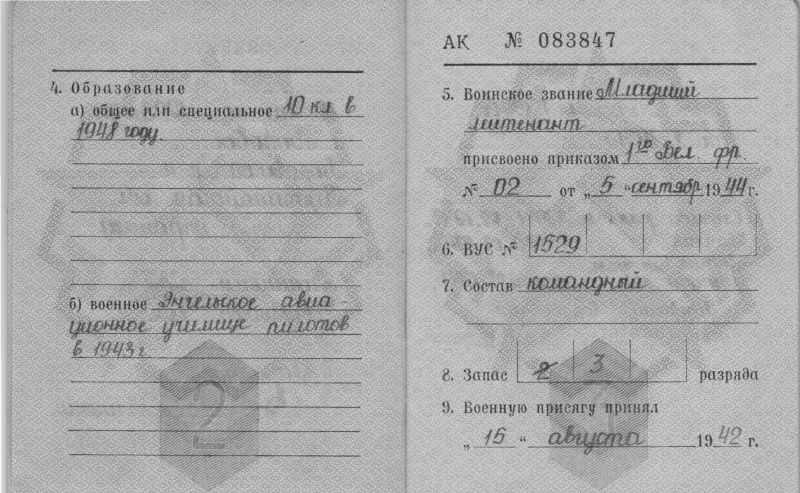 4. Образование
а) общее или специальное 10 кл в
1948 году.
б) военное Энгельское авиа-
ционное училище пилотов
в 1943 г.
2
АК № 083847
5. Воинское звание Младший
лейтенант
присвоено приказом 1го Бел. фр.
№ 02 от „5“ сентябр 1944 г.
6. ВУС № 1529
7. Состав командный
8. Запас 2 3 разряда
9. Военную присягу принял
„15“ августа 1942 г.